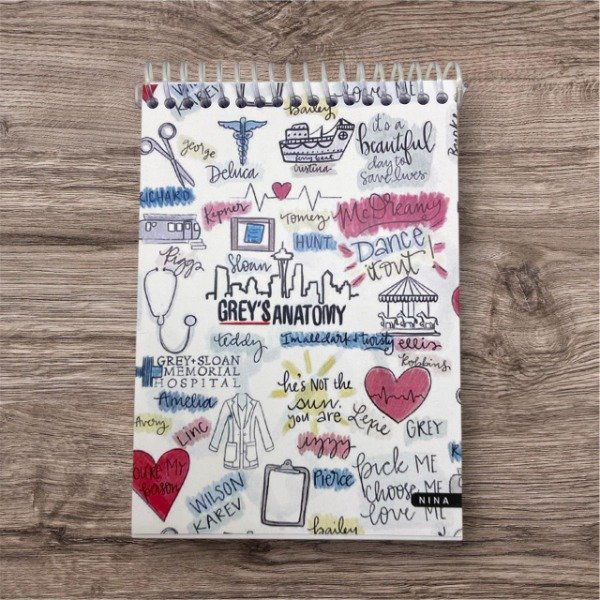 WILSON
KAREV
Bailey
LOVE ME
it's a
beautiful
day to
save lives
george
Deluca
ferry boat
cristina
RICHARD
Kepner
Tomez
McDreamy
HUNT
Dance
it out!
Riggs
Sloan
GREY'S ANATOMY
teddy
I'm all dark + twisty
ellis
Robbins
GREY+SLOAN
MEMORIAL
HOSPITAL
he's NOT the
sun.
you are
Amelia
Lexie
GREY
Avery
LINC
izzy
YOU'RE MY
person
Pierce
pick ME
choose ME
love ME
WILSON
KAREV
NINA
bailey